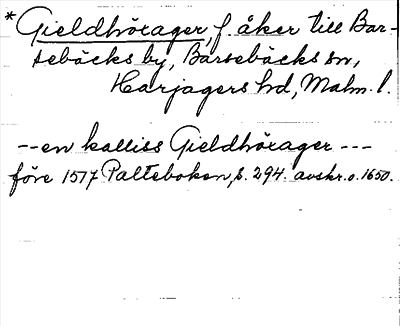 *Gieldhörager, f. åker till Bar-
sebäcks by, Barsebäcks sn,
Harjagers hd, Malm. l.
--en kalliss Gieldhörager ---
före 1517 Palteboken, s. 294. avskr. o. 1650.